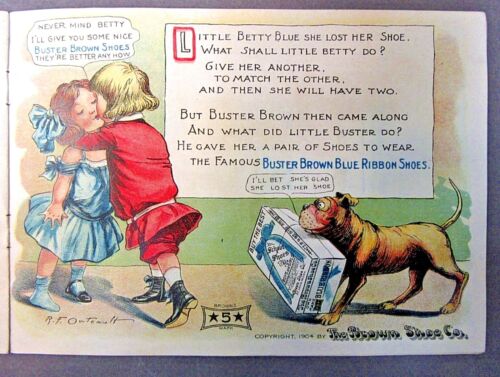 NEVER MIND BETTY
I'LL GIVE YOU SOME NICE
BUSTER BROWN SHOES
THEY'RE BETTER ANY HOW.
LITTLE BETTY BLUE SHE LOST HER SHOE,
WHAT SHALL LITTLE BETTY DO?
GIVE HER ANOTHER,
TO MATCH THE OTHER,
AND THEN SHE WILL HAVE TWO.
BUT BUSTER BROWN THEN CAME ALONG
AND WHAT DID LITTLE BUSTER DO?
HE GAVE HER A PAIR OF SHOES TO WEAR.
THE FAMOUS BUSTER BROWN BLUE RIBBON SHOES.
I'LL BET SHE'S GLAD
SHE LOST HER SHOE
BUY THE BEST
R.F. Outcault
BROWN'S
5
MARK
COPYRIGHT, 1904 BY The Brown Shoe Co.